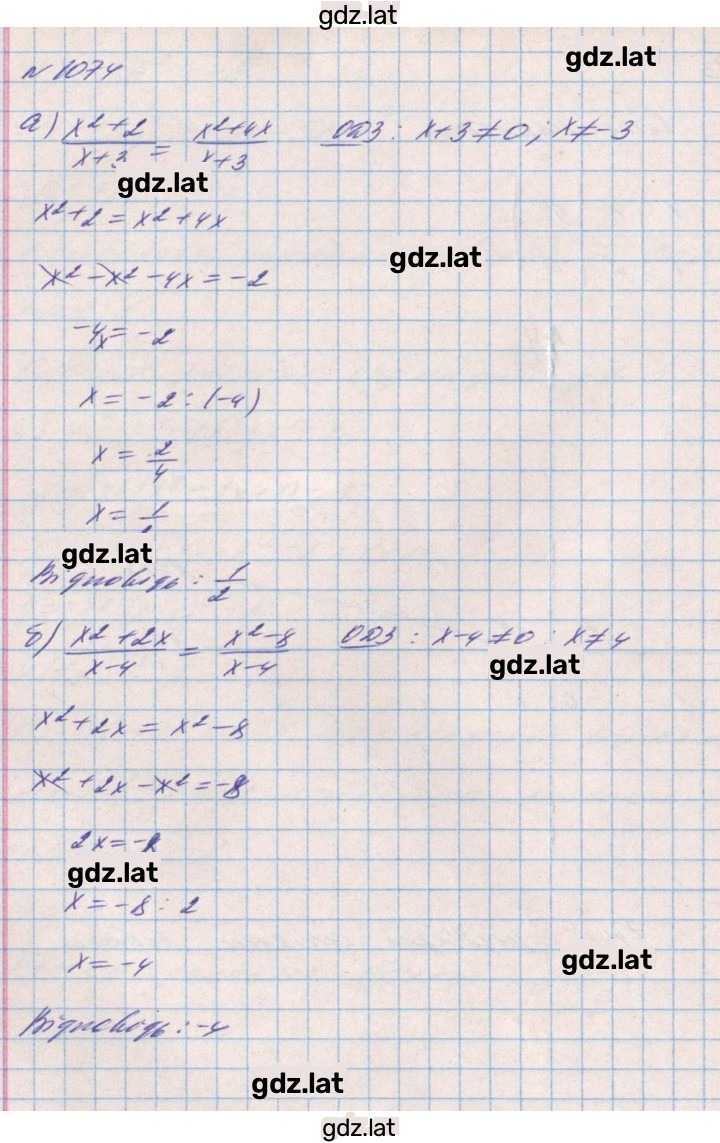 gdz.lat
gdz.lat
№ 1074
а) x²+2/x+3 = x²+4x/x+3 ОДЗ: x+3≠0; x≠-3
gdz.lat
x²+2=x²+4x
gdz.lat
x²-x²-4x=-2
-4x=-2
x=-2:(-4)
x=2/4
x=1/2
gdz.lat
Відповідь: 1/2
б) x²+2x/x-4 = x²-8/x-4 ОДЗ: x-4≠0; x≠4
gdz.lat
x²+2x=x²-8
x²+2x-x²=-8
2x=-8
gdz.lat
x=-8:2
x=-4
gdz.lat
Відповідь: -4
gdz.lat
gdz.lat